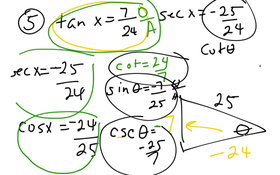 5 tan x = 7/24 O/A sec x = -25/24
cot θ
sec x = -25/24
cot = 24/7
sin θ = -7/25
cos x = -24/25
csc θ = -25/7
25
-7
θ
-24